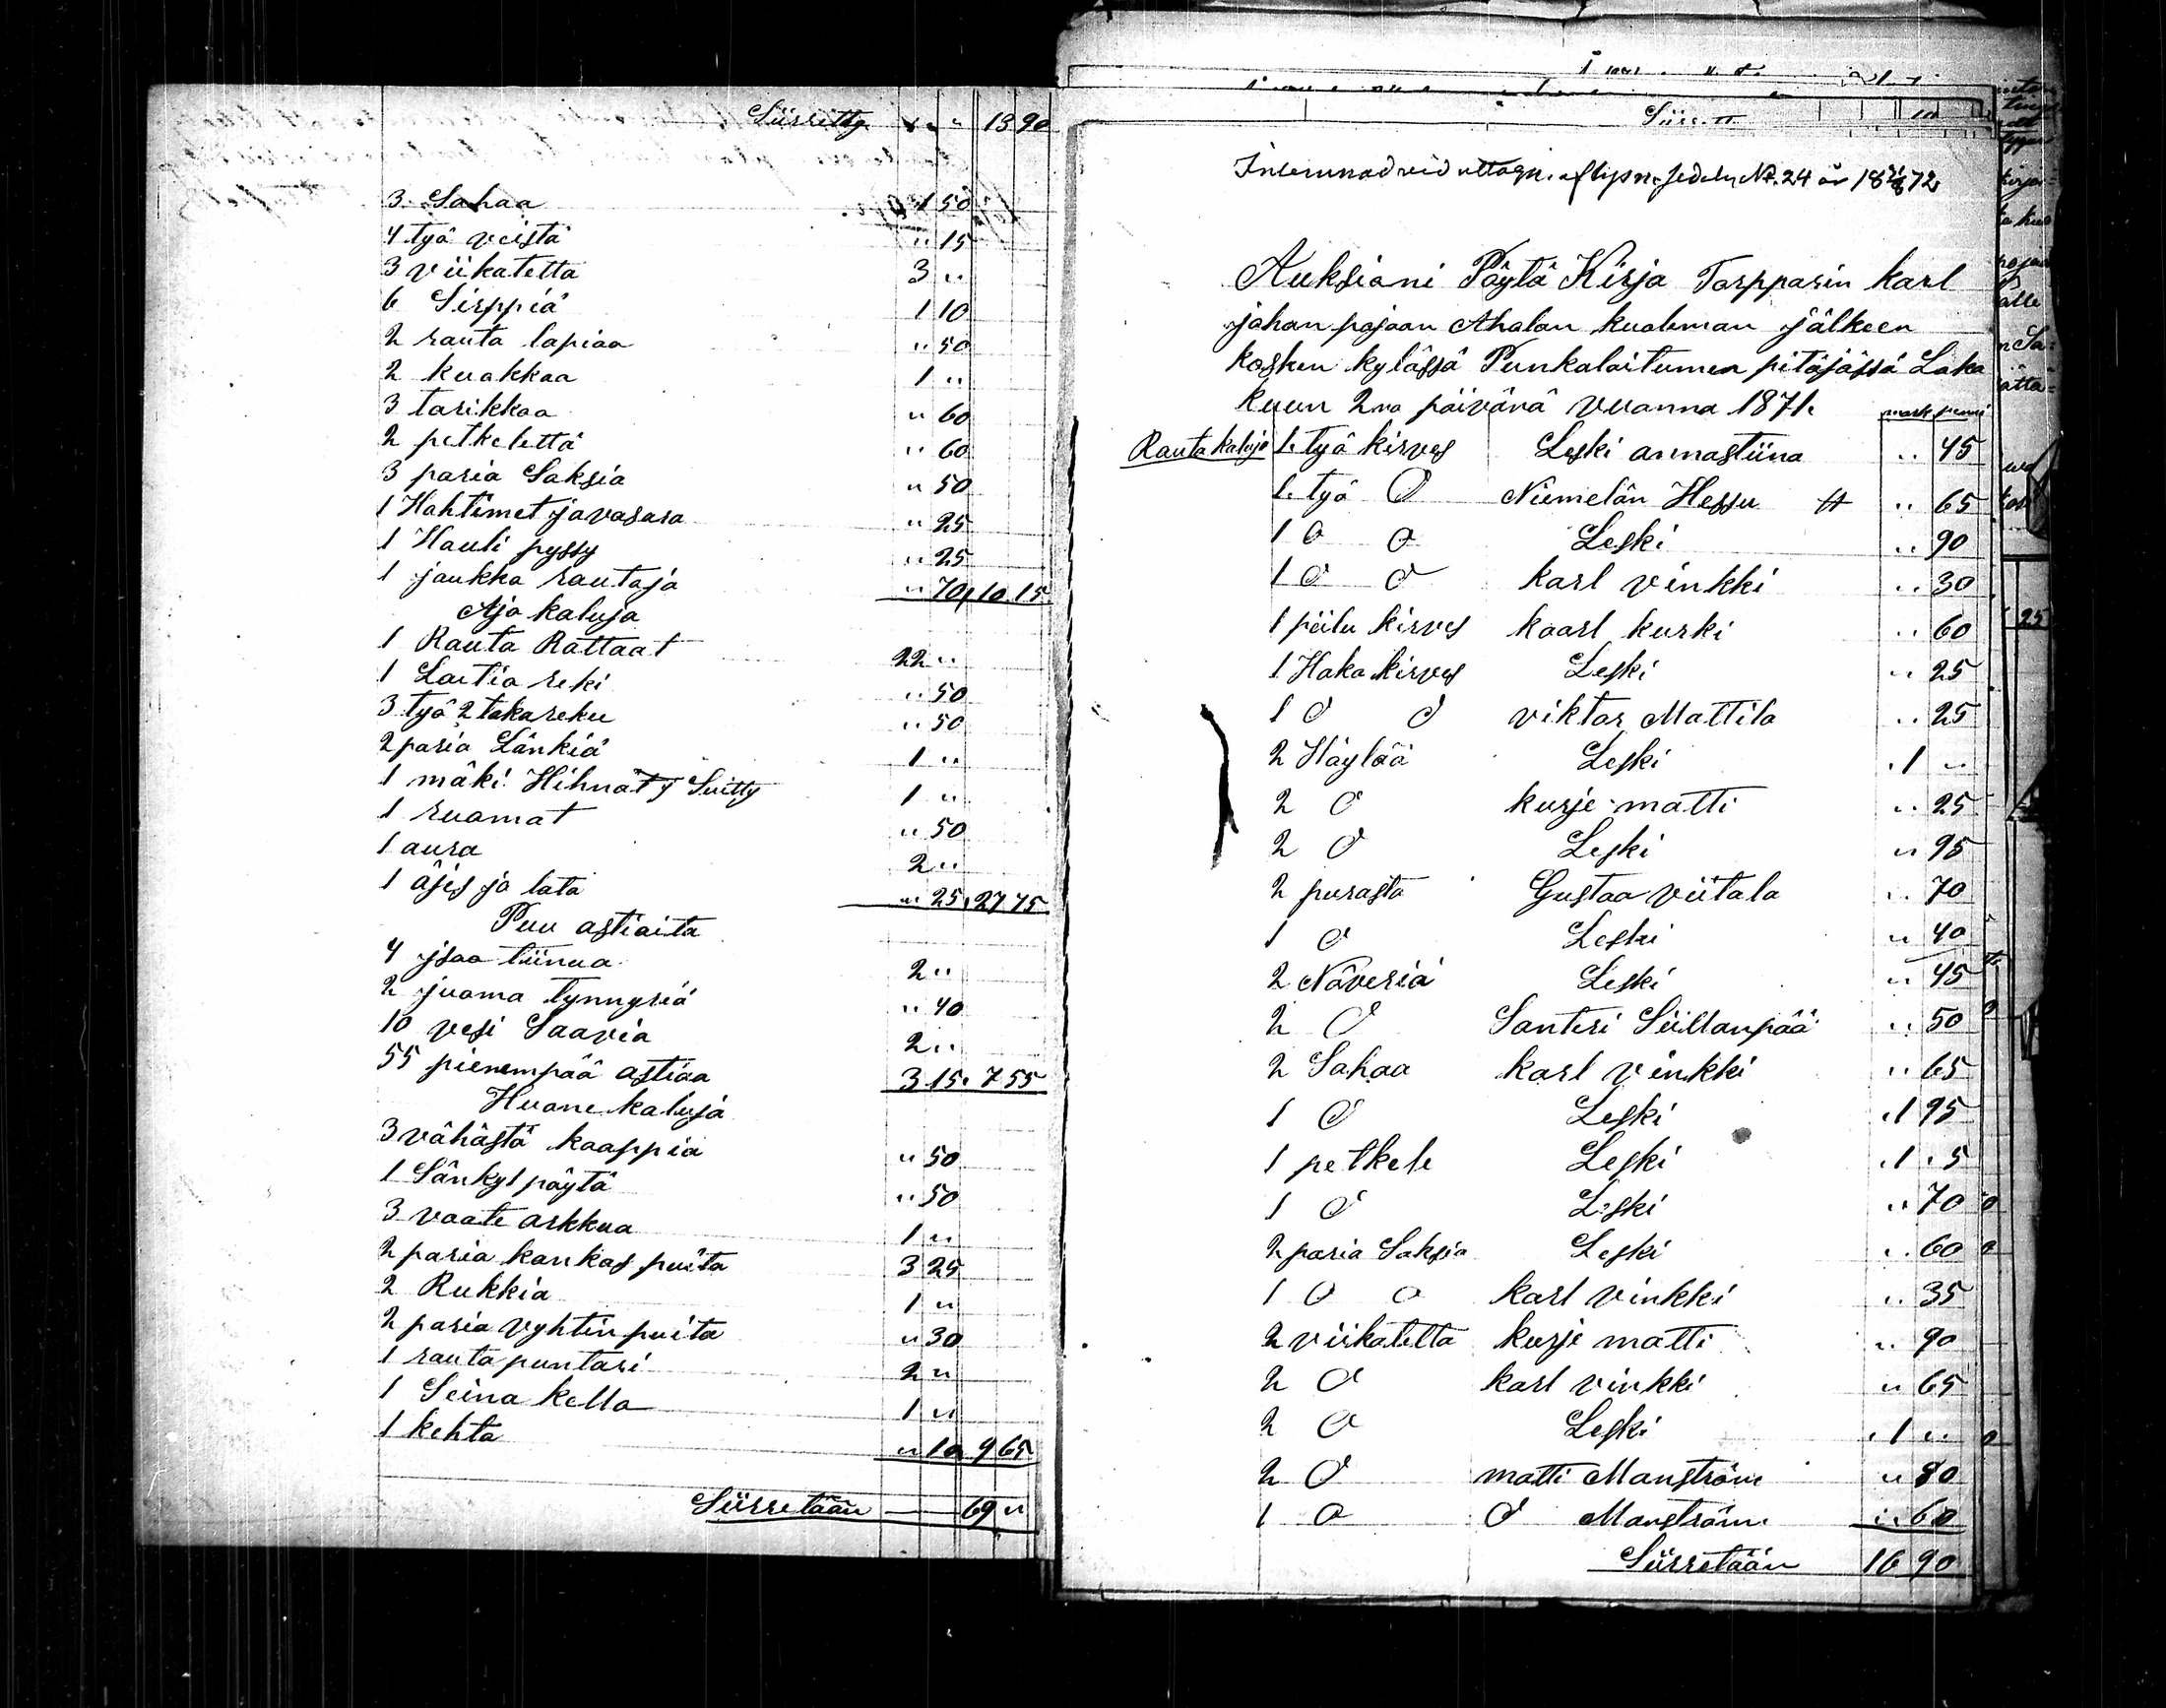 Siirretty " " 13 90
3 Sahaa 1 50
4 työ veistä " 15
3 viikatetta 3 "
6 Sirppiä 1 10
2 rauta lapiaa " 50
2 kuakkaa 1 "
3 tarikkaa " 60
2 petkelettä " 60
3 paria Saksia " 50
1 Hahtimet ja vasara " 25
1 Hauli pyssy " 25
1 jaukka rautaja " 70 10 15
Aja kaluja
1 Rauta Rattaat 22 "
1 Laitia reki " 50
3 työ 2 takareku " 50
2 paria Länkiä 1 "
1 mäki Hihnat j Suitty 1 "
1 ruamat " 50
1 aura 2 "
1 äjes ja lata " 25 27 75
Puu astiaita
4 jsaa tiinua 2 "
2 juama tynnyriä " 40
10 vesi Saavia 2 "
55 pienempää astiaa 3 15 7 55
Huane kaluja
3 vähästä kaappia " 50
1 Sänky 1 päytä " 50
3 vaate arkkua 1 "
2 paria kankas puita 3 25
2 Rukkia 1 "
2 paria vyhtin puita " 30
1 rauta puntari 2 "
1 Seina kello 1 "
1 kehta " 10 9 65
Siirretään 69 "
N:o 24 år 1872
Auksioni Päytä Kirja Torpparin karl
johan pojaan Ahalan kualeman jälkeen
kosken kylässä Punkalaitumen pitäjässä Loka
kuun 2na päivänä vuanna 1871.
mark penni
Rauta kaluja 1 työ kirves Leski annastiina " 45
1 työ O Niemelän Hessu " 65
1 O O Leski " 90
1 O O karl vinkki " 30
1 piilu kirves kaarl kurki " 60
1 Haka kirves Leski " 25
1 O O viktor Mattila " 25
2 Häylää Leski 1 "
2 O kurje matti " 25
2 O Leski " 95
2 purasta Gustaa viitala " 70
1 O Leski " 40
2 Näveriä Leski " 45
2 O Santeri Siillanpää " 50
2 Sahaa karl vinkki " 65
1 O Leski 1 95
1 petkele Leski 1 5
1 O Leski " 70
2 paria Saksia Leski " 60
1 O O karl vinkki " 35
2 viikatetta kurje matti " 90
2 O karl vinkki " 65
2 O Leski 1 "
2 O matti Manström " 80
1 O O Manström " 60
Siirretään 16 90